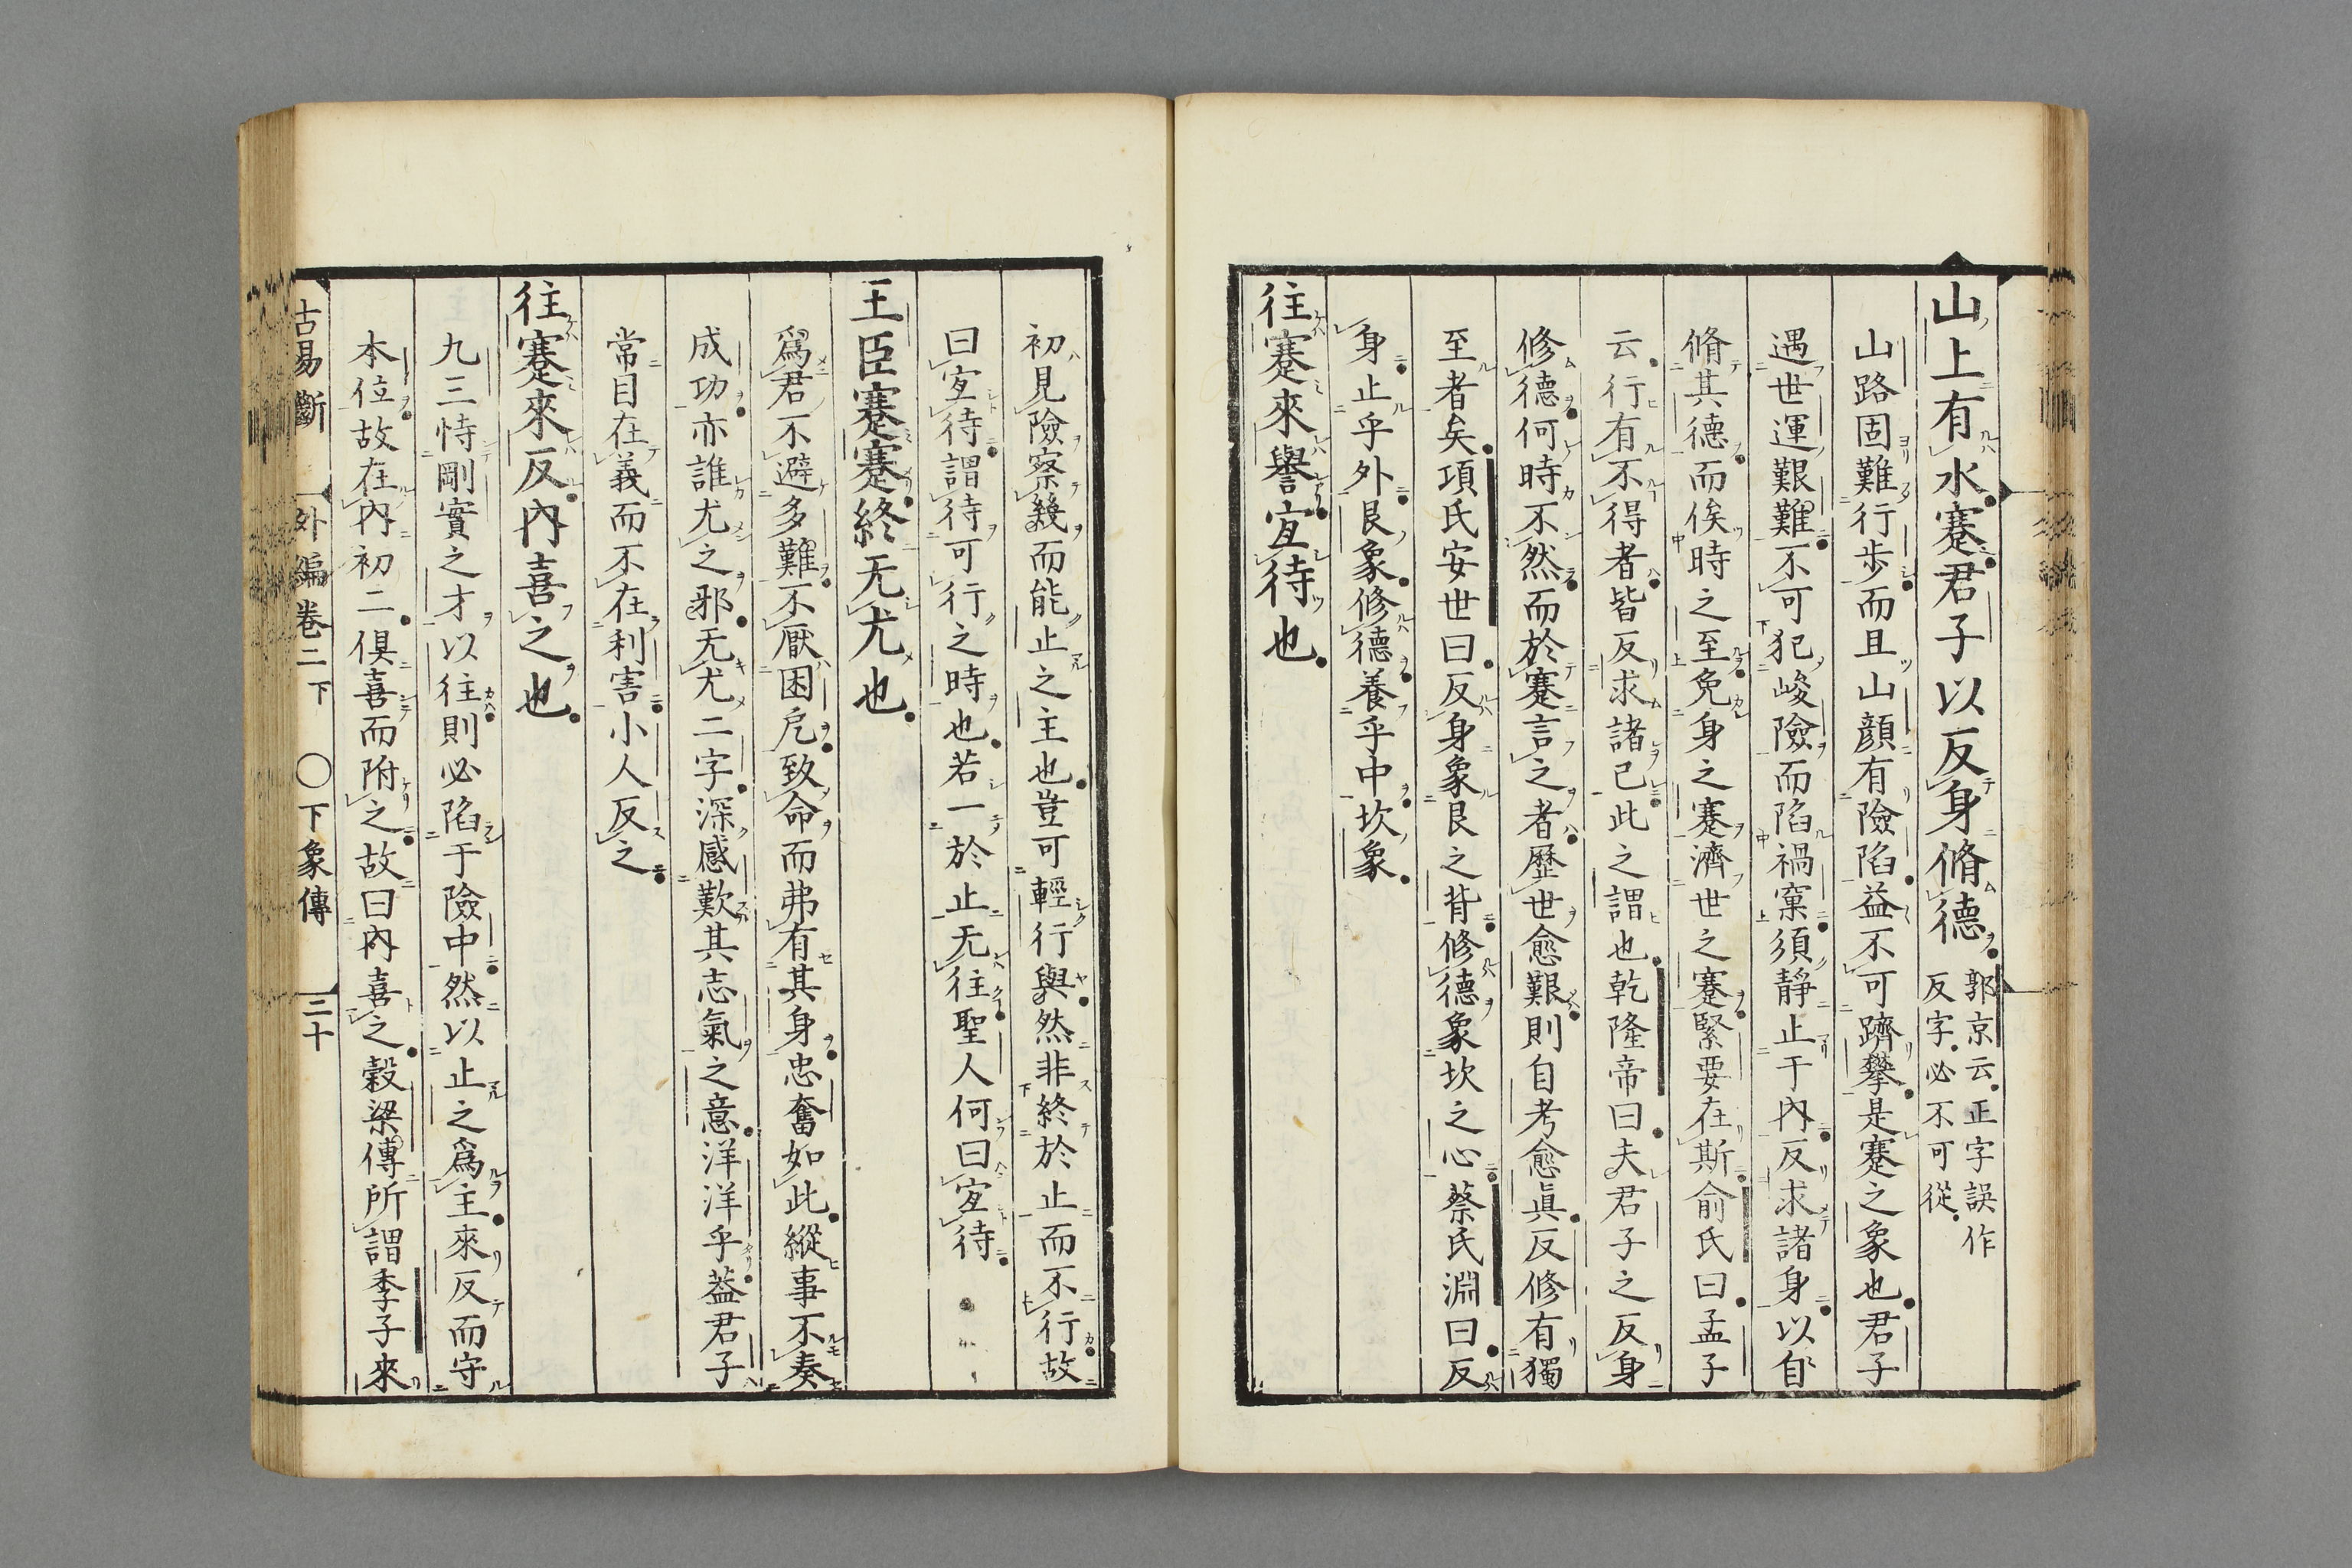 山上有水蹇君子以反身脩德 郭京云正字誤作
反字必不可從
山路固難行步而且山顔有險陷益不可躋攀是蹇之象也君子
遇世運艱難不可犯峻險而陷禍窠須靜止于內反求諸身以自
脩其德而俟時之至免身之蹇濟世之蹇緊要在斯俞氏曰孟子
云行有不得者皆反求諸己此之謂也乾隆帝曰夫君子之反身
修德何時不然而於蹇言之者歷世愈艱則自考愈眞反修有獨
至者矣項氏安世曰反身象艮之背修德象坎之心蔡氏淵曰反
身止乎外艮象修德養乎中坎象
往蹇來譽宜待也
初見險察幾而能止之主也豈可輕行與然非終於止而不行故
曰宜待謂待可行之時也若一於止无往聖人何曰宜待
王臣蹇蹇終无尤也
爲君不避多難不厭困戹致命而弗有其身忠奮如此縱事不奏
成功亦誰尤之邪无尤二字深感歎其志氣之意洋洋乎葢君子
常目在義而不在利害小人反之
往蹇來反內喜之也
九三恃剛實之才以往則必陷于險中然以止之爲主來反而守
本位故在內初二俱喜而附之故曰內喜之穀梁傳所謂季子來
古易斷 外編卷二下 〇下象傳 三十